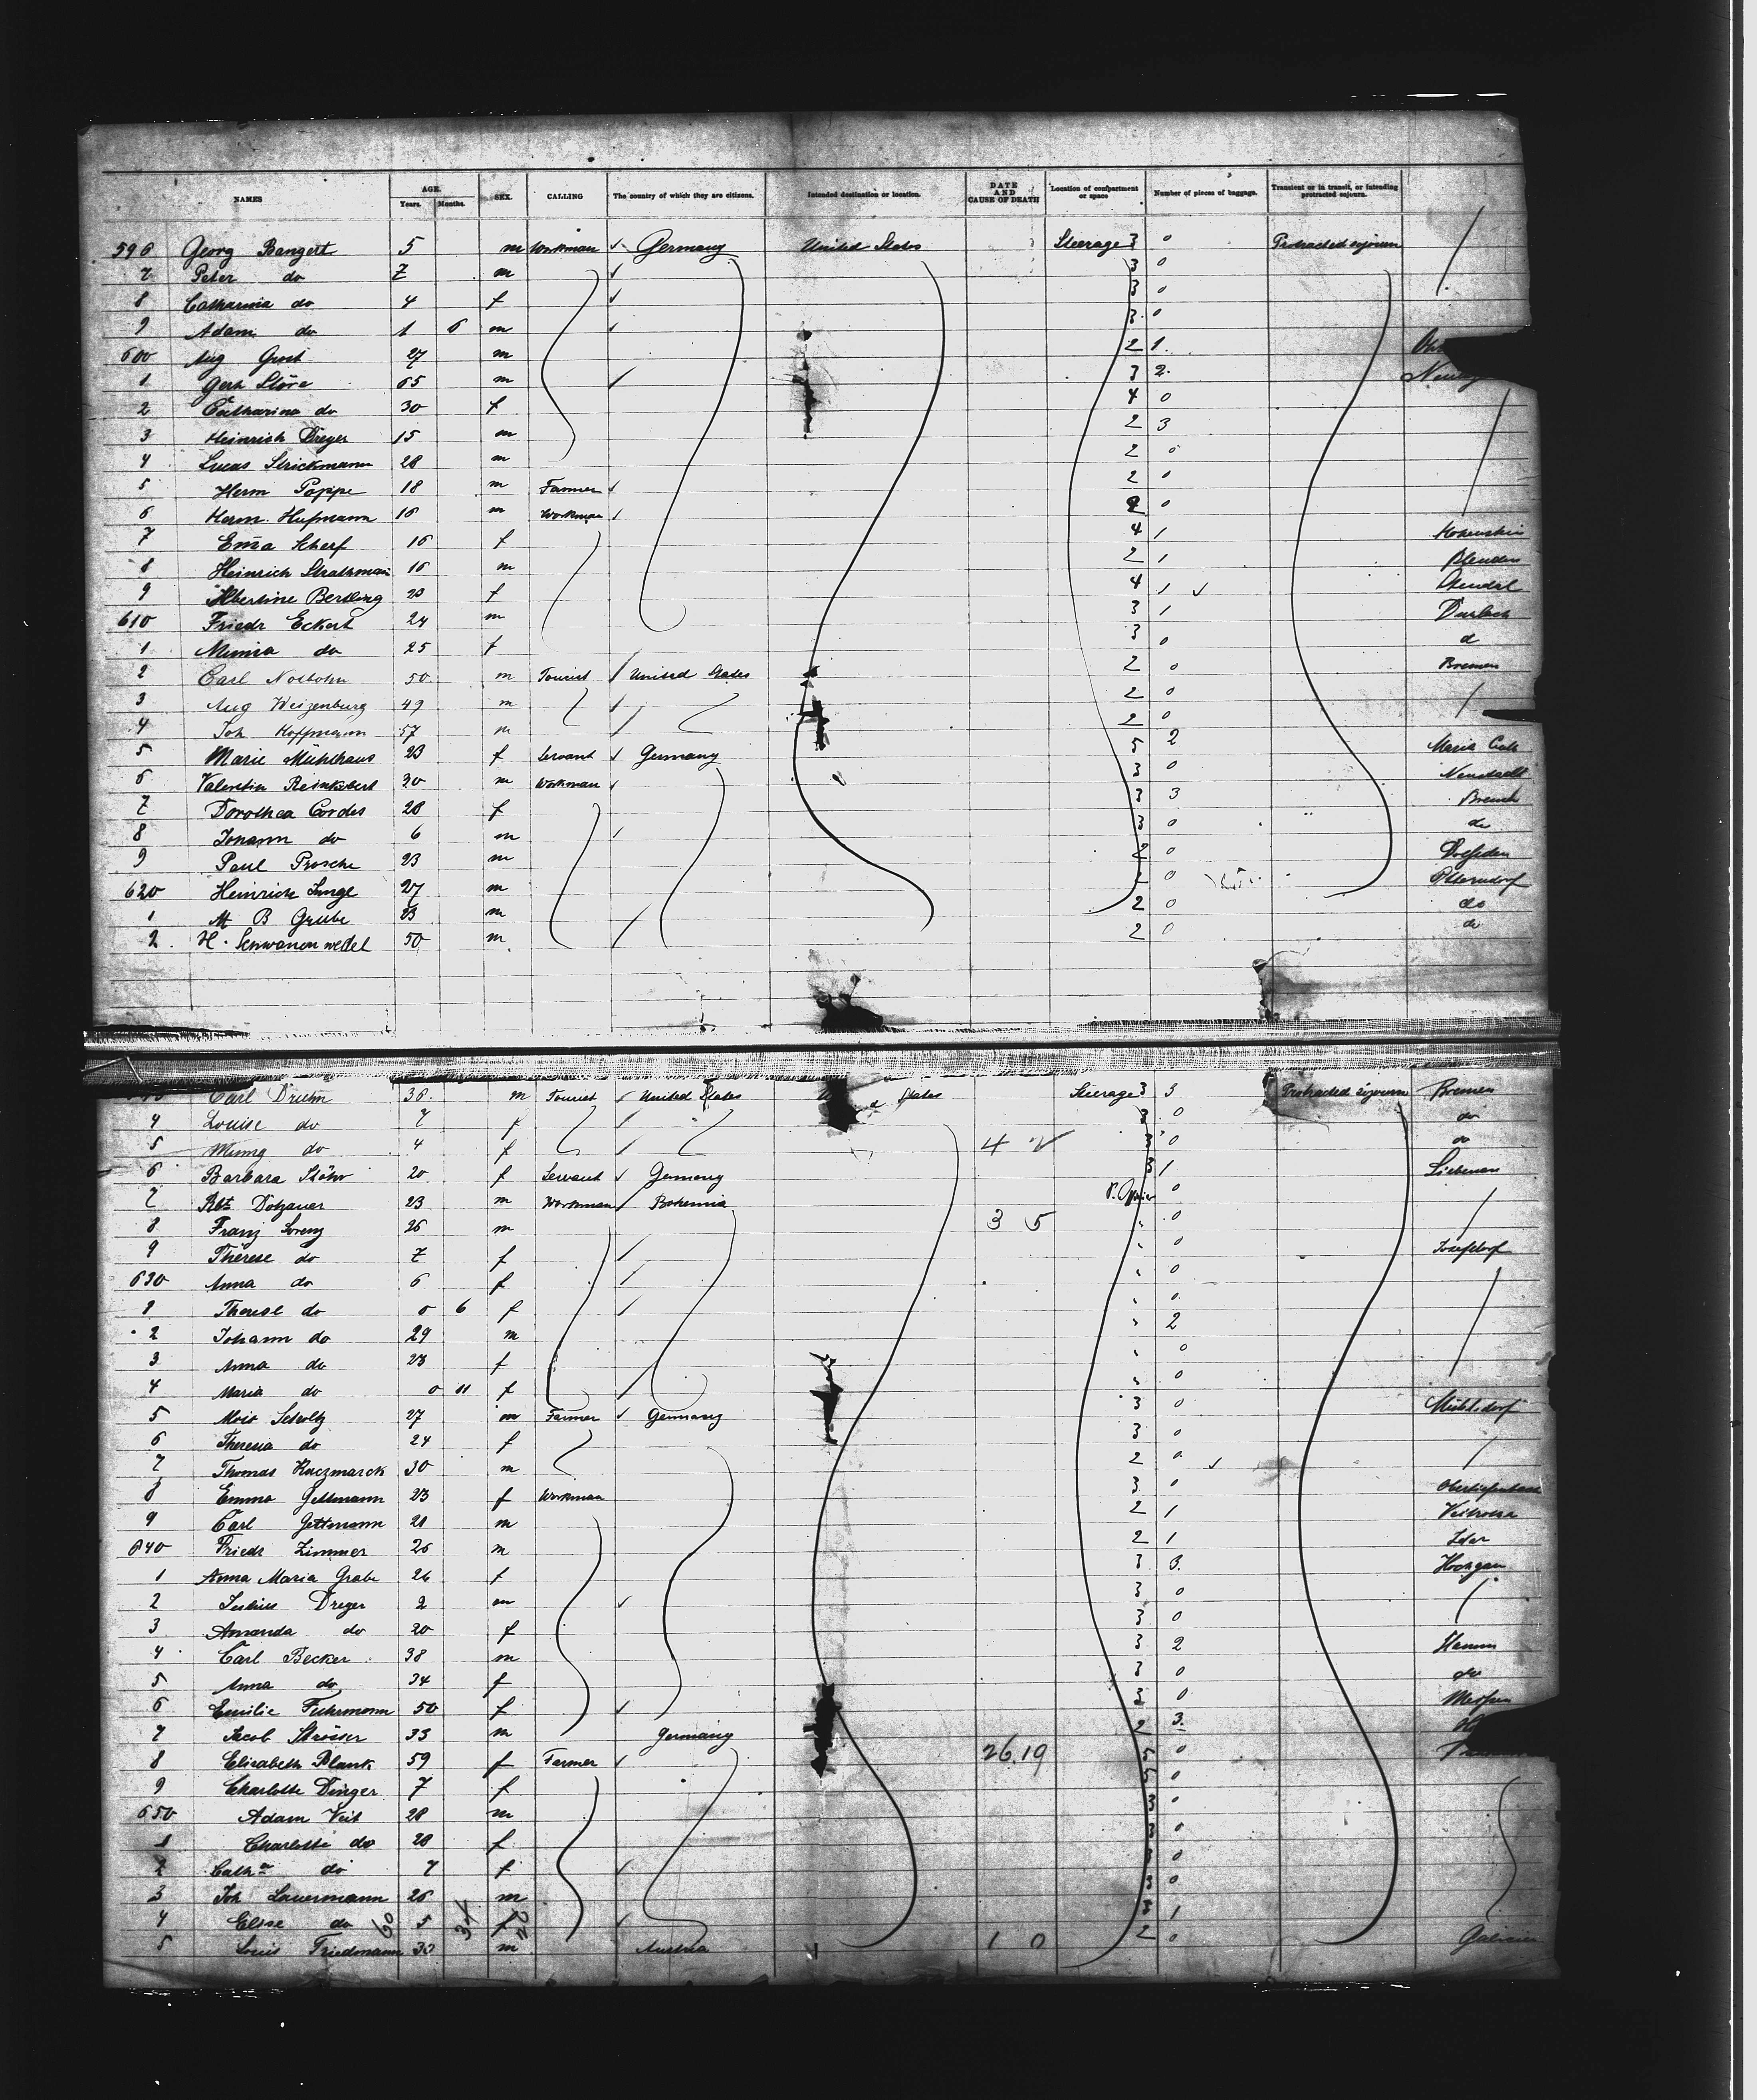 NAMES AGE. Years. Months. SEX. CALLING The country of which they are citizens. Intended destination or location. DATE AND CAUSE OF DEATH Location of compartment or space Number of pieces of baggage. Transient or in transit, or intending protracted sojourn.
596 Georg Bangert 5 m Workman Germany United States Steerage 3 0 Protracted sojourn
7 Peter do 7 m 3 0
8 Catharina do 4 f 3 0
9 Adam do 1 6 m 3 0
600 Aug 27 m 2 1
1 Gerh Störe 65 m 3 2
2 Catharina do 30 f 4 0
3 Heinrich Dreyer 15 m 2 3
4 Lucas Strickmann 28 m 2 0
5 Herm Poppe 18 m Farmer 2 0
6 Herm. Hufmann 16 m Workman 2 0
7 Em̄a Scherf 16 f 4 1
8 Heinrich Strathman 16 m 2 1
9 Albertine Bertling 23 f 4 1 Stendal
610 Friedr Eckert 24 m 3 1 Durlach
1 Minna do 25 f 3 0 d
2 Carl Nolbohn 50 m Tourist United States 2 0 Bremen
3 Aug Weizenburg 49 m 2 0
4 Joh Hoffmann 57 m 2 0
5 Marie Mühlhaus 23 f Servant Germany 5 2 Maria
6 Valentin 30 m Workman 3 0 Neustadt
7 Dorothea Cordes 28 f 3 3
8 Johann do 6 m 3 0 do
9 Paul Prosche 23 m 2 0
620 Heinrich Lange 27 m 2 0 Otterndorf
1 M B Grube 23 m 2 0 do
2 H. Schwanenwedel 50 m 2 0 do
Carl Druhm 38 m Tourist United States States Steerage 3 3 Protracted sojourn Bremen
4 Louise do 7 f 3 0 do
5 do 4 f 4 3 0 do
6 Barbara Stöhr 20 f Servant Germany 3 1
7 Dotzauer 23 m Workman Bohemia 0
8 Franz Lorenz 26 m 3 5 " 0
9 Therese do 7 f " 0 Josefsdorf
630 Anna do 6 f " 0
1 Therese do 0 6 f " 0
2 Johann do 29 m " 2
3 Anna do 23 f " 0
4 Maria do 0 11 f " 0
5 Alois Scholtz 27 m Farmer Germany 3 0 Mühldorf
6 Theresia do 24 f 3 0
7 Thomas Kaczmarek 30 m 2 0
8 Emma Gettmann 23 f Workman 3 0
9 Carl Gettmann 21 m 2 1
640 Friedr Zimmer 26 m 2 1 Idar
1 Anna Maria Grabe 26 f 3 3
2 Julius Dreger 2 m 3 0
3 Amanda do 20 f 3 0
4 Carl Becker 38 m 3 2 Hamm
5 Anna do 34 f 3 0 do
6 Emilie Fuhrmann 50 f 3 0
7 Jacob Strösser 33 m Germany 2 3
8 Elisabeth Blank 59 f Farmer 26.19 5 0
9 Charlotte Dinger 7 f 5 0
650 Adam Veit 28 m 3 0
1 Charlotte do 28 f 3 0
2 Cath.a do 7 f 3 0
3 Joh Lauermann 26 m 3 0
4 Elise do 5 f 3 1
5 Louis Friedmann 30 m Austria 1 0 2 0 Galicien